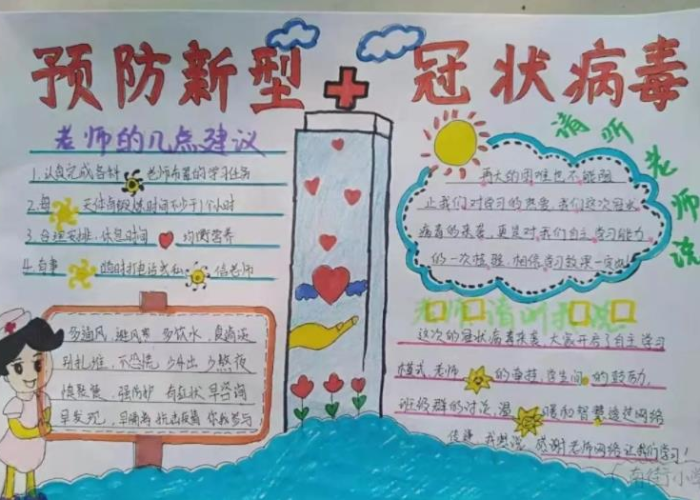 预防新型冠状病毒
老师的几点建议
1.认真完成各科老师布置的学习任务
2.每天体育锻炼时间不少于1个小时
3.合理安排,休息时间 均衡营养
4.有事 的时打电话或私 信老师
多通风 避风寒 多饮水 良
别扎堆,不恐慌 少外出 少熬夜
慎聚餐,强防护 有症状早咨询
早发现,早 你我参与
请听老师说
再大的困难也不能阻
止我们对学习的热爱,我们这次冠状
病毒的来袭,更是对我们自主学习能力
的一次挑战,相信学习效果一定
老师请听我说
这次的冠状病毒来袭 大家开启了自主学习
模式,老师 的直播,学生间 的鼓励,
班级群的讨论,温 暖和智慧透过网络
传递 感谢老师网络让我们学习!
南街小